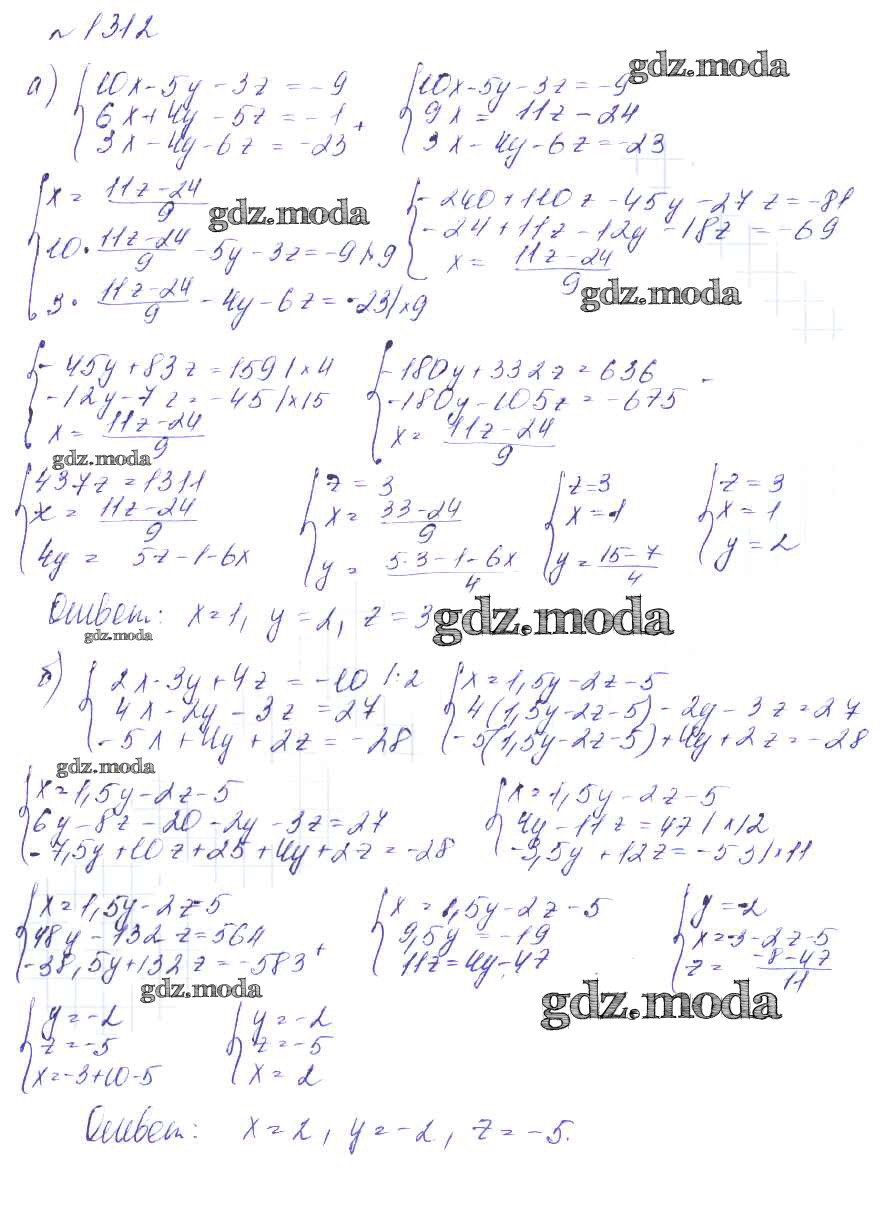 № 1312
gdz.moda
а) { 10x - 5y - 3z = -9
6x + 4y - 5z = -1 +
3x - 4y - 6z = -23
{ 10x - 5y - 3z = -9
9x = 11z - 24
3x - 4y - 6z = -23
{ x = (11z - 24)/9
10 · (11z - 24)/9 - 5y - 3z = -9 | × 9
3 · (11z - 24)/9 - 4y - 6z = -23 | × 9
gdz.moda
{ -240 + 110z - 45y - 27z = -81
-24 + 11z - 12y - 18z = -69
x = (11z - 24)/9
gdz.moda
{ -45y + 83z = 159 | × 4
-12y - 7z = -45 | × 15
x = (11z - 24)/9
gdz.moda
{ -180y + 332z = 636 -
-180y - 105z = -675
x = (11z - 24)/9
{ 437z = 1311
x = (11z - 24)/9
4y = 5z - 1 - 6x
{ z = 3
x = (33 - 24)/9
y = (5·3 - 1 - 6x)/4
{ z = 3
x = 1
y = (15 - 7)/4
{ z = 3
x = 1
y = 2
Ответ: x = 1, y = 2, z = 3
gdz.moda
gdz.moda
б) { 2x - 3y + 4z = -10 | : 2
4x - 2y - 3z = 27
-5x + 4y + 2z = -28
{ x = 1,5y - 2z - 5
4(1,5y - 2z - 5) - 2y - 3z = 27
-5(1,5y - 2z - 5) + 4y + 2z = -28
gdz.moda
{ x = 1,5y - 2z - 5
6y - 8z - 20 - 2y - 3z = 27
-7,5y + 10z + 25 + 4y + 2z = -28
{ x = 1,5y - 2z - 5
4y - 11z = 47 | × 12
-3,5y + 12z = -53 | × 11
{ x = 1,5y - 2z - 5
48y - 132z = 564 +
-38,5y + 132z = -583
gdz.moda
{ x = 1,5y - 2z - 5
9,5y = -19
11z = 4y - 47
{ y = -2
x = -3 - 2z - 5
z = (-8 - 47)/11
gdz.moda
{ y = -2
z = -5
x = -3 + 10 - 5
{ y = -2
z = -5
x = 2
Ответ: x = 2, y = -2, z = -5.